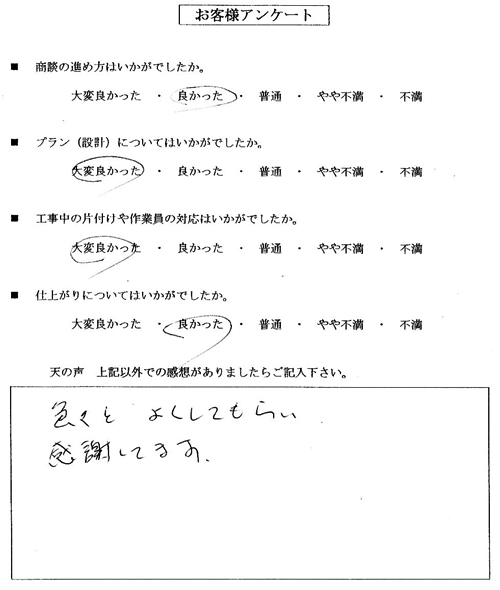 お客様アンケート
■ 商談の進め方はいかがでしたか。
大変良かった ・ 良かった ・ 普通 ・ やや不満 ・ 不満
■ プラン（設計）についてはいかがでしたか。
大変良かった ・ 良かった ・ 普通 ・ やや不満 ・ 不満
■ 工事中の片付けや作業員の対応はいかがでしたか。
大変良かった ・ 良かった ・ 普通 ・ やや不満 ・ 不満
■ 仕上がりについてはいかがでしたか。
大変良かった ・ 良かった ・ 普通 ・ やや不満 ・ 不満
天の声 上記以外での感想がありましたらご記入下さい。
色々と よくしてもらい
感謝してます.